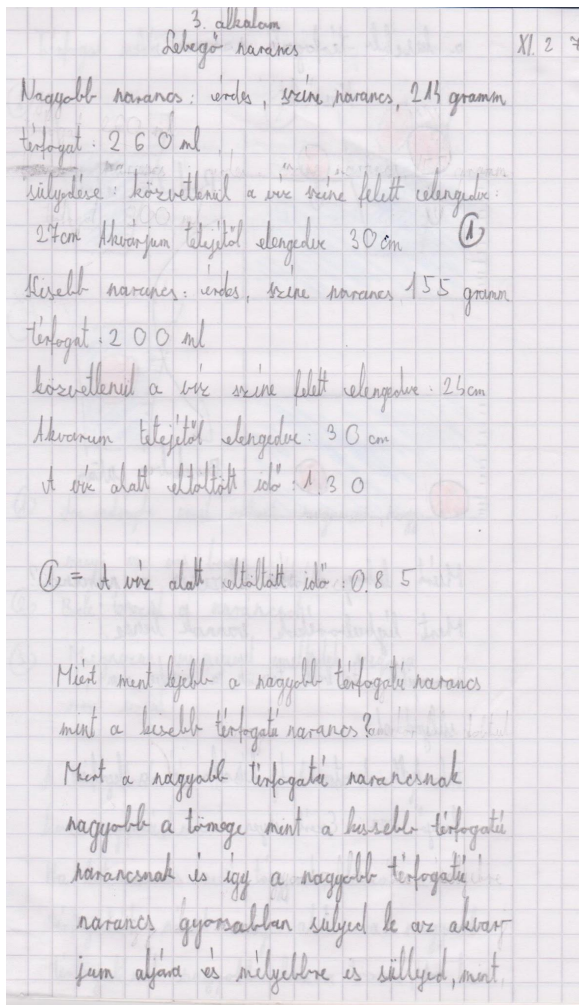 3. alkalom
Lebegő narancs XI. 27
Nagyobb narancs: érdes, színe narancs, 214 gramm
térfogat: 260 ml
sülyedése: közvetlenül a víz színe felett elengedve:
27cm Akvárjum tetejétől elengedve 30cm ①
Kisebb narancs: érdes, színe narancs 155 gramm
térfogat: 200 ml
közvetlenül a víz színe felett elengedve: 24cm
Akvarum tetejétől elengedve: 30 cm
A víz alatt eltöltött idő: 1.30
① = A víz alatt eltöltött idő: 0.85
Miért ment lejebb a nagyobb térfogatú narancs
mint a kisebb térfogatú narancs?
Mert a nagyobb térfogatú narancsnak
nagyobb a tömege mint a kissebb térfogatú
narancsnak és így a nagyobb térfogatú
narancs gyorsabban sülyed le az akvar-
jum aljára és mélyebbre is süllyed, mint